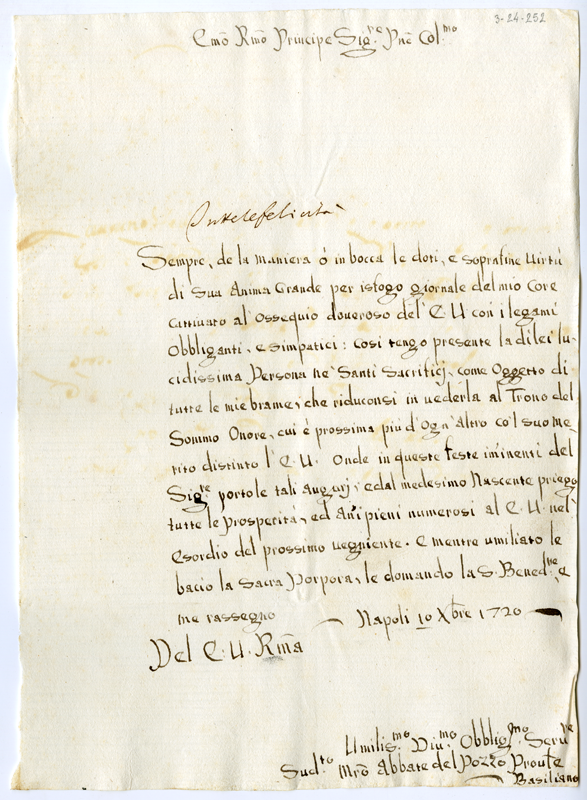 3-24-252
Emo Rmo Principe Sig.re Pne Col.mo
Sempre, de la maniera ò in bocca le doti, e soprafine Uirtù
di Sua Anima Grande per isfogo giornale del mio Core
Cattiuato al'Ossequio doueroso del' E.U con i legami
Obbliganti, e simpatici: così tengo presente la dilei lu-
cidissima Persona ne' Santi Sacrificj, come Oggetto di
tutte le mie brame, che riduconsi in uederla al Trono del
Sommo Onore, cui è prossima più d'Ogn'altro co'l suo me
rito distinto l'E.U. Onde in queste feste iminenti del
Sig.re portole tali augurj, e dal medesimo Nascente priego
tutte le Prosperità, ed Añi pieni numerosi al E.U nel'
Esordio del prossimo uegniente. E mentre umiliato le
bacio la Sacra Porpora, le domando la S. Bened.ne, e
me rassegno — Napoli 10 Xbre 1720 —
Del E.U. Rma
Umilis.mo Diu.mo Obblig.mo Seru.re
Sud.to Mro Abbate del Pozzo Proule
Basiliano